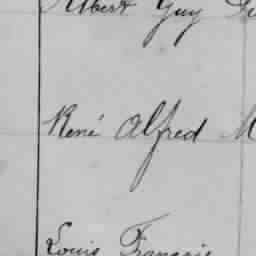 Albert Guy
René Alfred M
Louis François